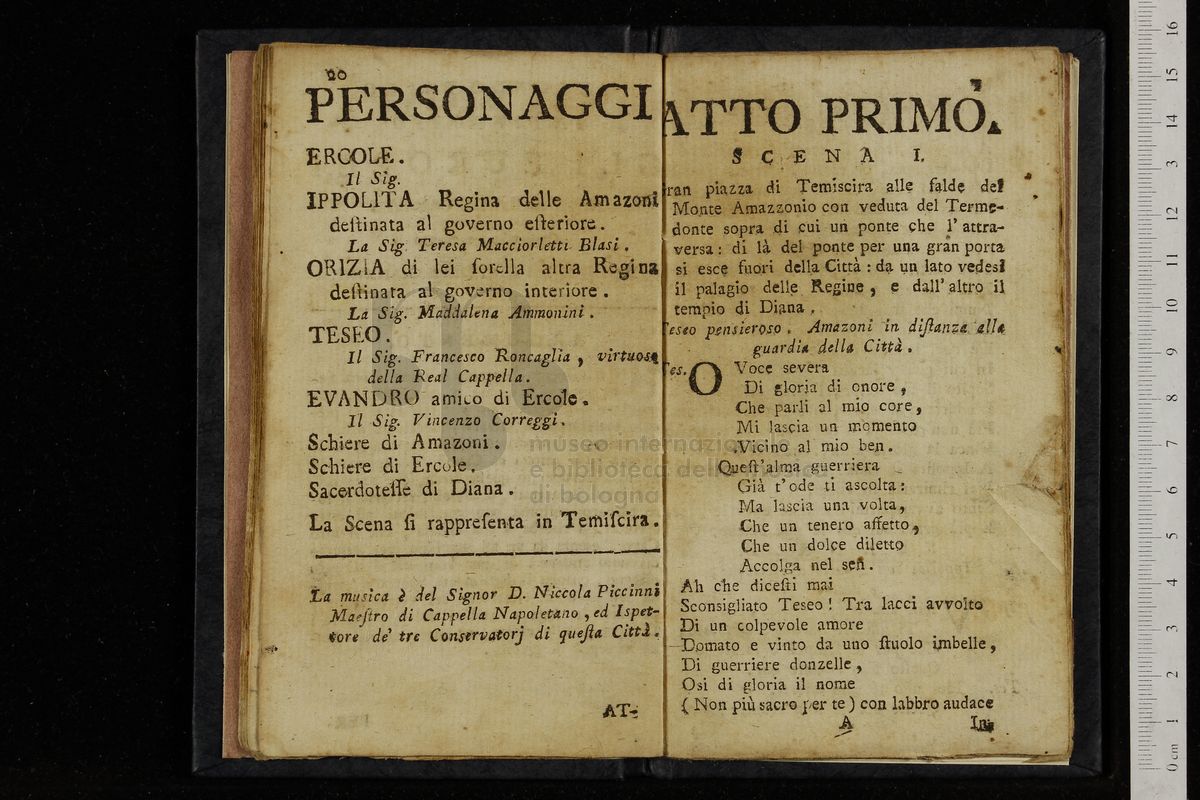 20
PERSONAGGI
ERCOLE.
Il Sig.
IPPOLITA Regina delle Amazoni
deſtinata al governo eſteriore.
La Sig. Tereſa Macciorletti Blasi.
ORIZIA di lei ſorella altra Regina
deſtinata al governo interiore.
La Sig. Maddalena Ammonini.
TESEO.
Il Sig. Franceſco Roncaglia, virtuoso
della Real Cappella.
EVANDRO amico di Ercole.
Il Sig. Vincenzo Correggi.
Schiere di Amazoni.
Schiere di Ercole.
Sacerdoteſſe di Diana.
La Scena ſi rappreſenta in Temiſcira.
La musica è del Signor D. Niccola Piccinni
Maeſtro di Cappella Napoletano, ed Ispet-
tore de' tre Conservatorj di queſta Città.
AT-
ATTO PRIMO.
SCENA I.
ran piazza di Temiscira alle falde del
Monte Amazzonio con veduta del Terme-
donte sopra di cui un ponte che l'attra-
versa: di là del ponte per una gran porta
si esce fuori della Città: da un lato vedesi
il palagio delle Regine, e dall'altro il
tempio di Diana.
eseo pensieroso. Amazoni in diſtanza alla
guardia della Città.
es. O Voce severa
Di gloria di onore,
Che parli al mio core,
Mi lascia un momento
Vicino al mio ben.
Queſt'alma guerriera
Già t'ode ti ascolta:
Ma lascia una volta,
Che un tenero affetto,
Che un dolce diletto
Accolga nel sen.
Ah che diceſti mai
Sconsigliato Teseo! Tra lacci avvolto
Di un colpevole amore
Domato e vinto da uno ſtuolo imbelle,
Di guerriere donzelle,
Osi di gloria il nome
(Non più sacro per te) con labbro audace
A In-
museo internazionale
e biblioteca della musica
di bologna
0 cm 1 2 3 4 5 6 7 8 9 10 11 12 13 14 15 16